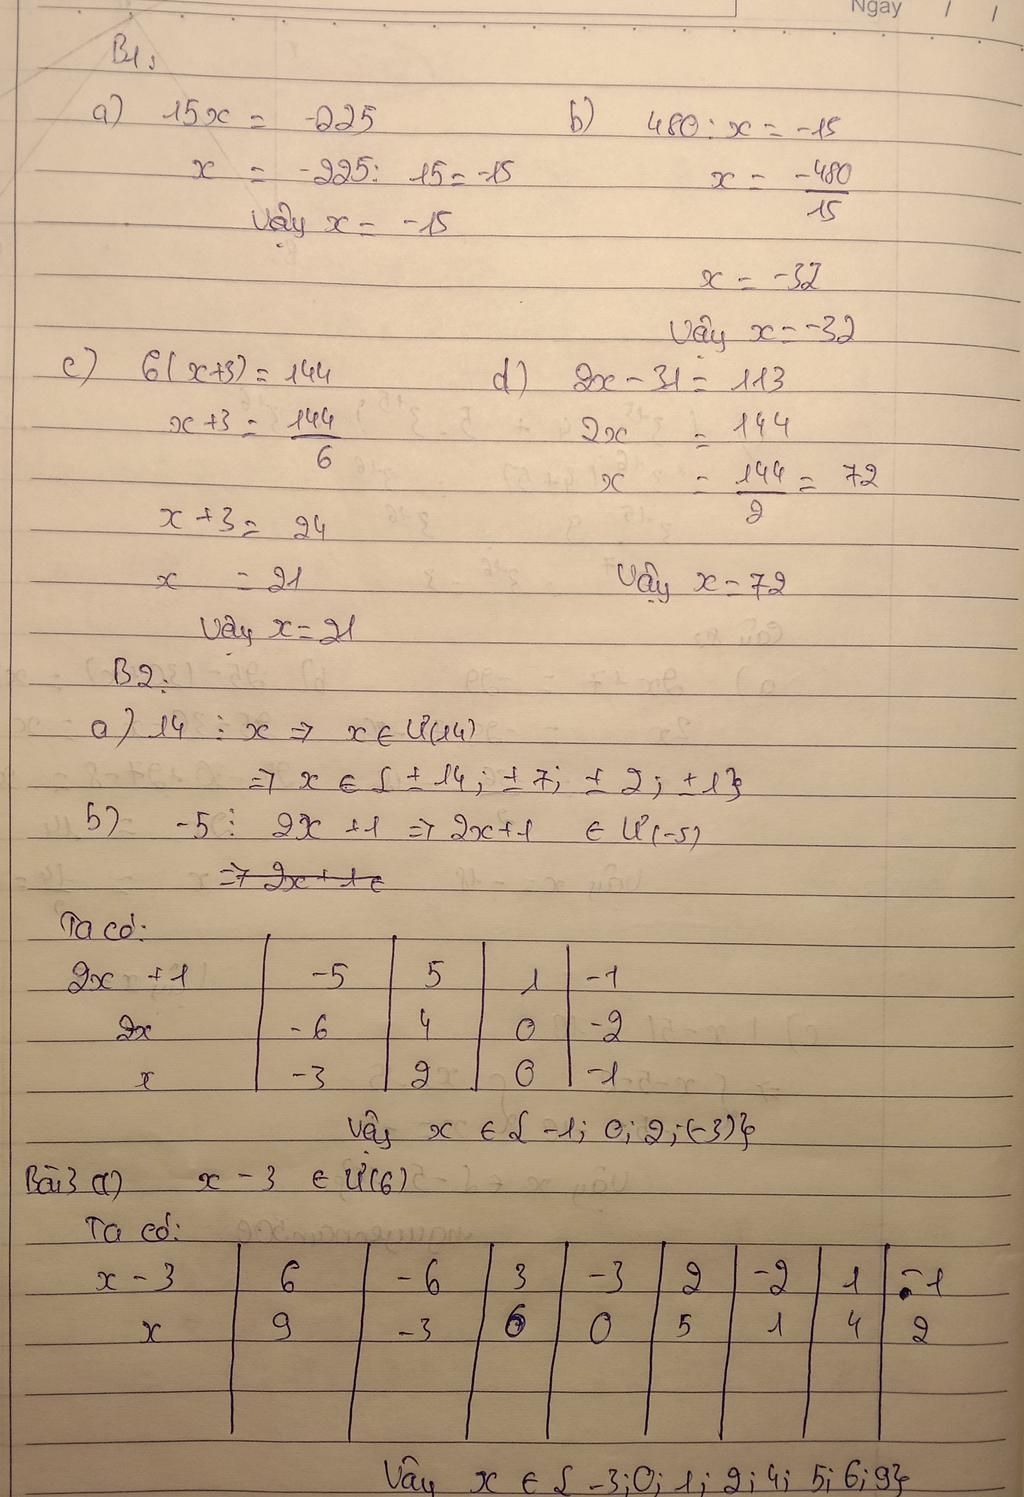 Ngày / /
B1:
a) 15x = -225
x = -225 : 15 = -15
Vậy x = -15
b) 480 : x = -15
x = -480/15
x = -32
Vậy x = -32
c) 6(x+3) = 144
x+3 = 144/6
x+3 = 24
x = 21
Vậy x = 21
d) 2x - 31 = 113
2x = 144
x = 144/2 = 72
Vậy x = 72
B2:
a) 14 ⋮ x => x ∈ Ư(14)
=> x ∈ { ±14; ±7; ±2; ±1}
b) -5 ⋮ 2x + 1 => 2x+1 ∈ Ư(-5)
=> 2x + 1 ∈
Ta có:
2x + 1 | -5 | 5 | 1 | -1
2x | -6 | 4 | 0 | -2
x | -3 | 2 | 0 | -1
Vậy x ∈ { -1; 0; 2; (-3)}
Bài 3 a) x - 3 ∈ Ư(6)
Ta có:
x - 3 | 6 | -6 | 3 | -3 | 2 | -2 | 1 | -1
x | 9 | -3 | 6 | 0 | 5 | 1 | 4 | 2
Vậy x ∈ { -3; 0; 1; 2; 4; 5; 6; 9}